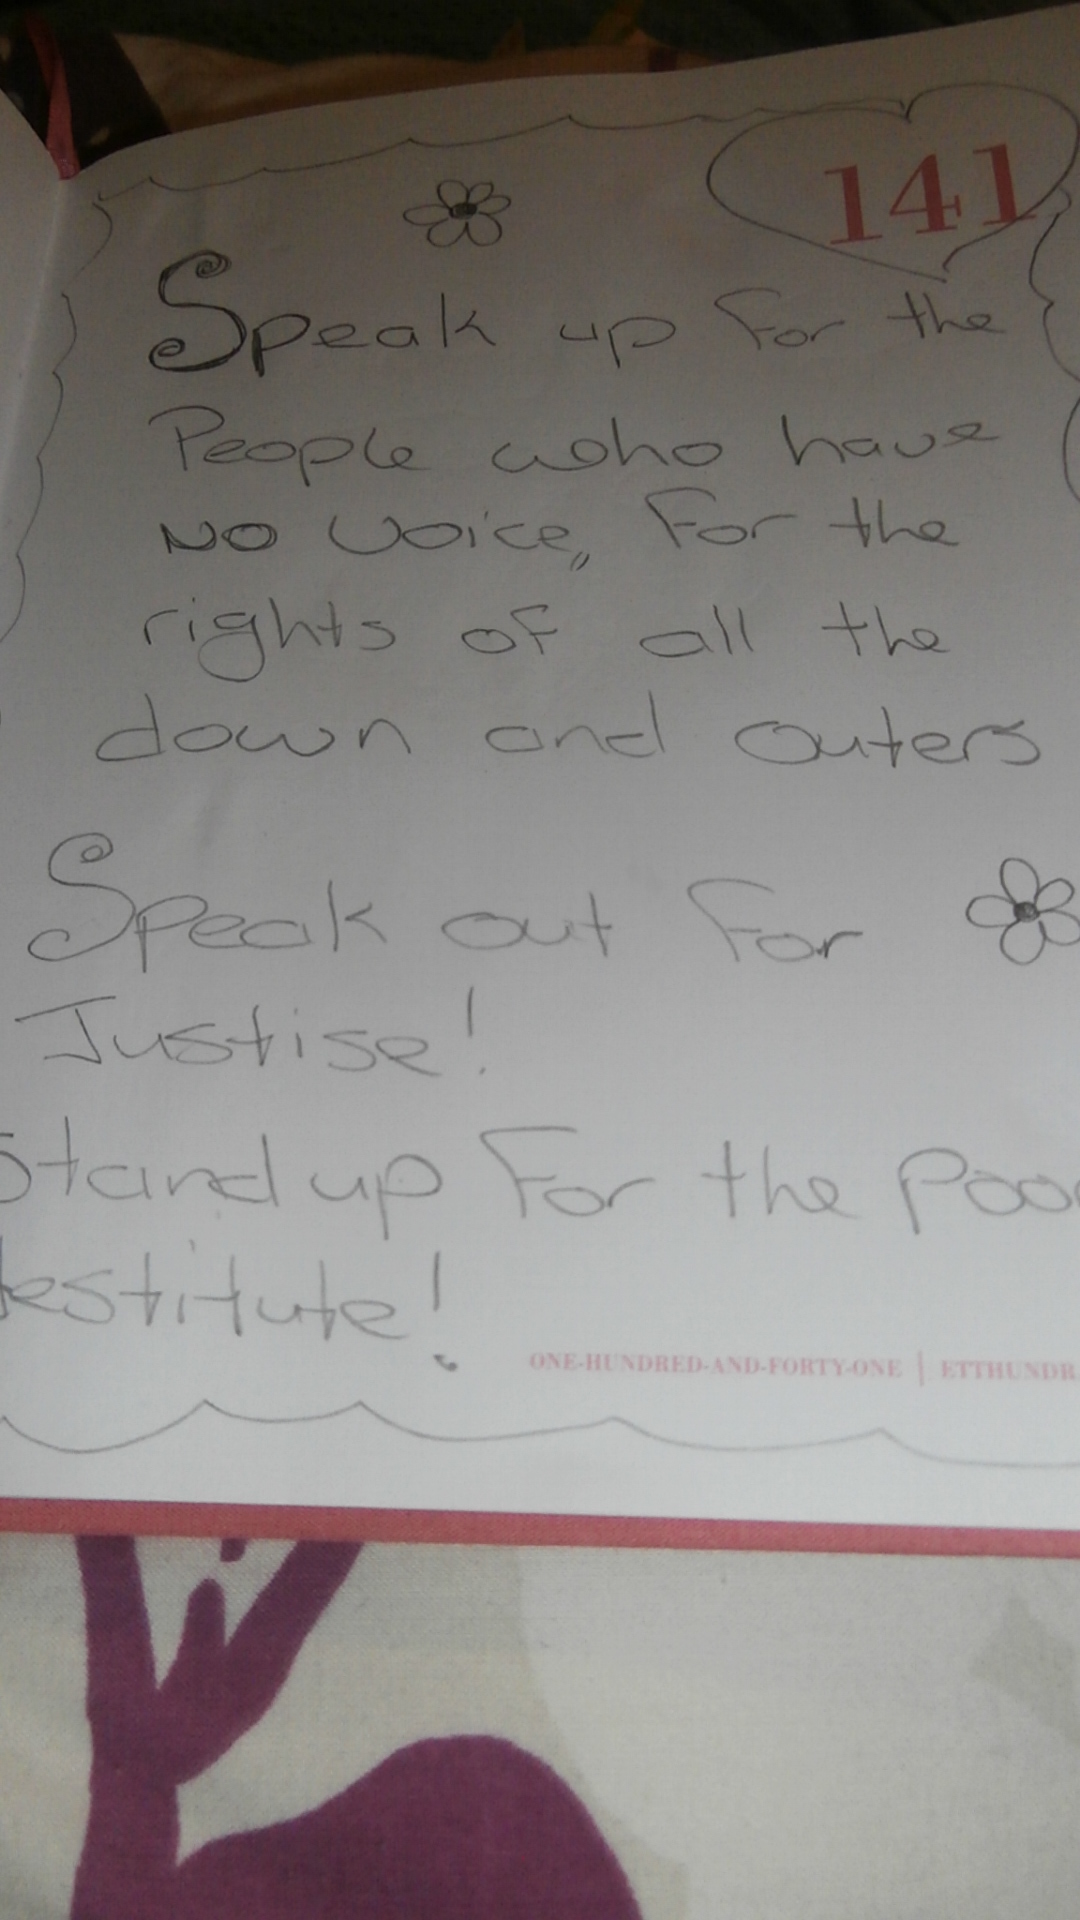 141
Speak up for the
People who have
NO voice,, For the
rights of all the
down and outers
Speak out for
Justise!
Stand up For the Poor
destitute!
ONE-HUNDRED-AND-FORTY-ONE | ETTHUNDR